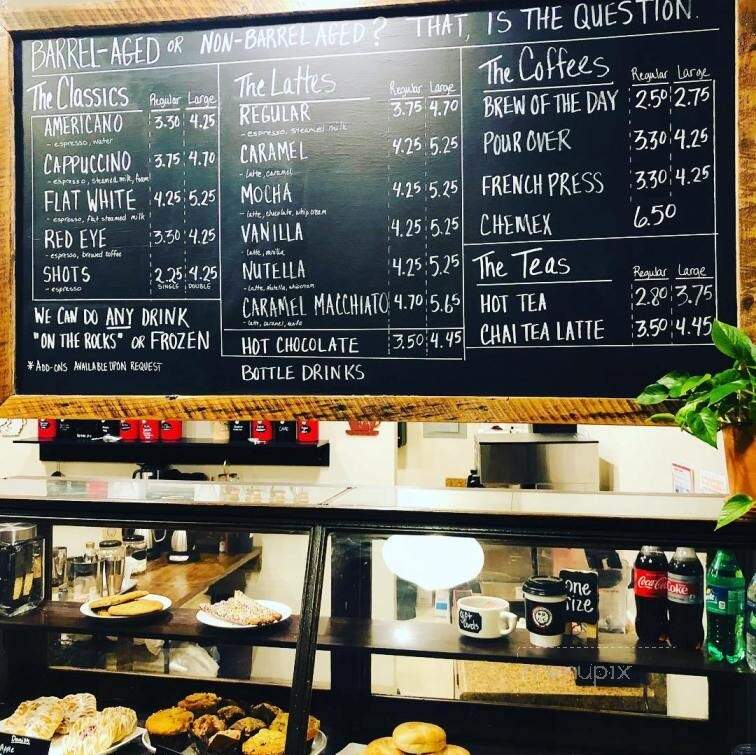 BARREL-AGED OR NON-BARREL AGED? THAT, IS THE QUESTION.
The Classics Regular Large
AMERICANO 3.30 4.25
- espresso, water
CAPPUCCINO 3.75 4.70
- espresso, steamed milk, foam
FLAT WHITE 4.25 5.25
- espresso, flat steamed milk
RED EYE 3.30 4.25
- espresso, brewed coffee
SHOTS 2.25 4.25
- espresso SINGLE DOUBLE
WE CAN DO ANY DRINK
"ON THE ROCKS" OR FROZEN
* ADD-ONS AVAILABLE UPON REQUEST
The Lattes Regular Large
REGULAR 3.75 4.70
- espresso, steamed milk
CARAMEL 4.25 5.25
- latte, caramel
MOCHA 4.25 5.25
- latte, chocolate, whip cream
VANILLA 4.25 5.25
- latte, vanilla
NUTELLA 4.25 5.25
- latte, nutella, whipcream
CARAMEL MACCHIATO 4.70 5.65
- latte, caramel,
HOT CHOCOLATE 3.50 4.45
BOTTLE DRINKS
The Coffees Regular Large
BREW OF THE DAY 2.50 2.75
POUR OVER 3.30 4.25
FRENCH PRESS 3.30 4.25
CHEMEX 6.50
The Teas Regular Large
HOT TEA 2.80 3.75
CHAI TEA LATTE 3.50 4.45
one
size
Coca-Cola
Coke
Gift
Cards
menupix
Danish
Apple